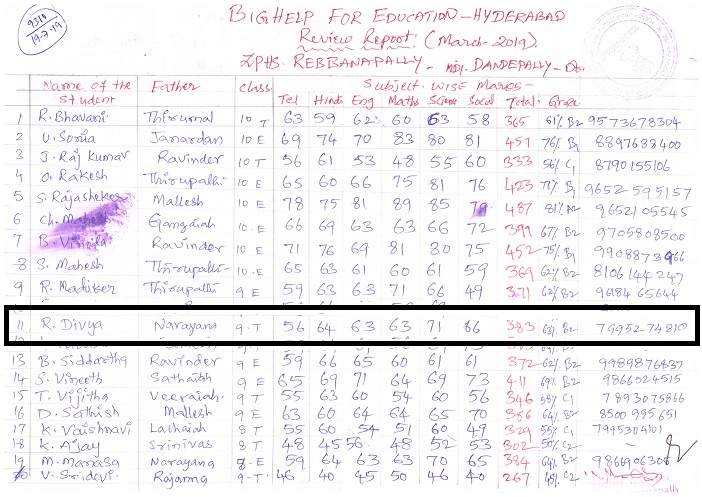 9310
19-7-19
BIGHELP FOR EDUCATION - HYDERABAD
Review Report. (March-2019).
ZPHS. REBBANAPALLY - DANDEPALLY -
Name of the Student Father class Subject wise Marks -
Tel Hindi Eng Maths Science Social Total Grade
1 R. Bhavani Thirumal 10 T 63 59 62 60 63 58 365 61% B2 9573678304
2 V. Sonia Janardan 10 E 69 74 70 83 80 81 457 76% B1 8897688400
3 J. Raj Kumar Ravinder 10 T 56 61 53 48 55 60 333 56% C1 8790155106
4 O. Rakesh Thirupathi 10 E 65 60 66 75 81 76 423 71% B1 9652595157
5 S. Rajasheker Mallesh 10 E 78 75 81 89 85 79 487 81% A2 9652105545
6 Ch. Mahesh Gangaiah 10 E 66 69 63 63 66 72 399 67% B2 9705808500
7 B. Ravinder 10 E 71 76 69 81 80 75 452 75% B1
8 S. Mahesh Thirupathi 10 E 65 63 61 60 61 59 369 62% B2 8106144247
9 Thirupathi 9 E 59 63 63 71 66 49 371 62% B2 9618465644
11 R. Divya Narayana 9 T 56 64 63 63 71 66 383 63% B2 7995274810
13 B. Siddartha Ravinder 9 E 59 66 65 60 61 61 372 62% B2 9989876837
14 S. Vineeth Sathaiah 9 E 65 69 71 64 69 73 411 69% B2 9866024515
15 T. Vijitha Veeraiah 9 T 55 63 60 54 60 56 346 58% C1 7893075866
16 D. Sathish Mallesh 9 E 63 60 64 64 65 70 386 64% B2 8500995651
17 K. Vaishnavi Lachaiah 8 T 55 60 54 51 60 49 329 55% C1 7995304101
18 K. Ajay Srinivas 8 T 48 45 56 48 52 53 302 50% C2
19 M. Manasa Narayana 8 E 59 64 63 63 70 65 384 64% B2
20 V. Sridevi Rajanna 9 T 46 40 45 50 46 40 267 45% C2